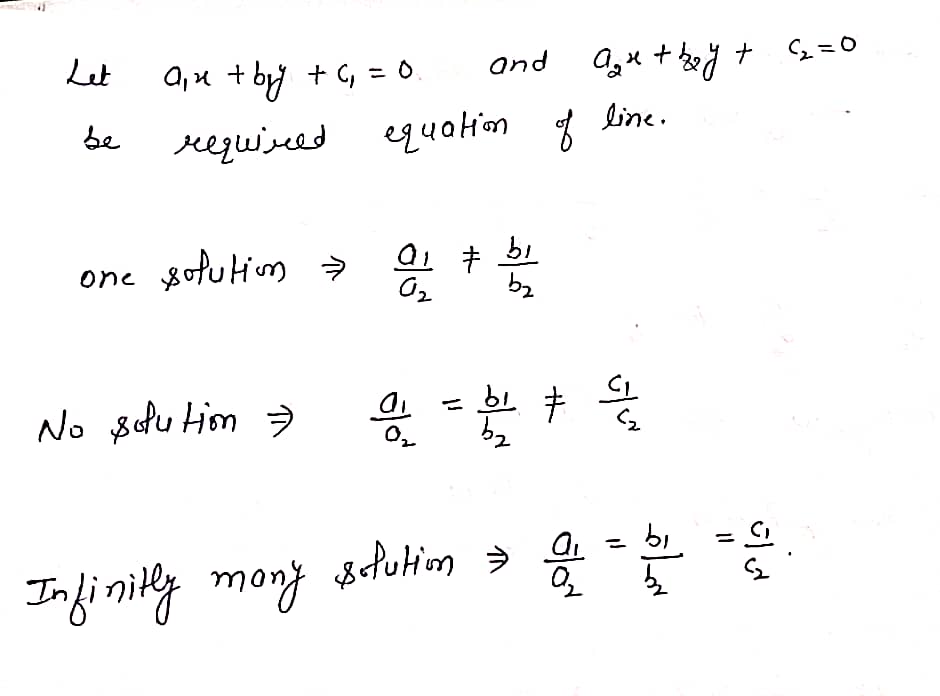 Let a₁x + b₁y + c₁ = 0. and a₂x + b₂y + c₂ = 0
be required equation of line.
one solution ⇒ a₁/a₂ ≠ b₁/b₂
No solution ⇒ a₁/a₂ = b₁/b₂ ≠ c₁/c₂
Infinitly many solution ⇒ a₁/a₂ = b₁/b₂ = c₁/c₂.